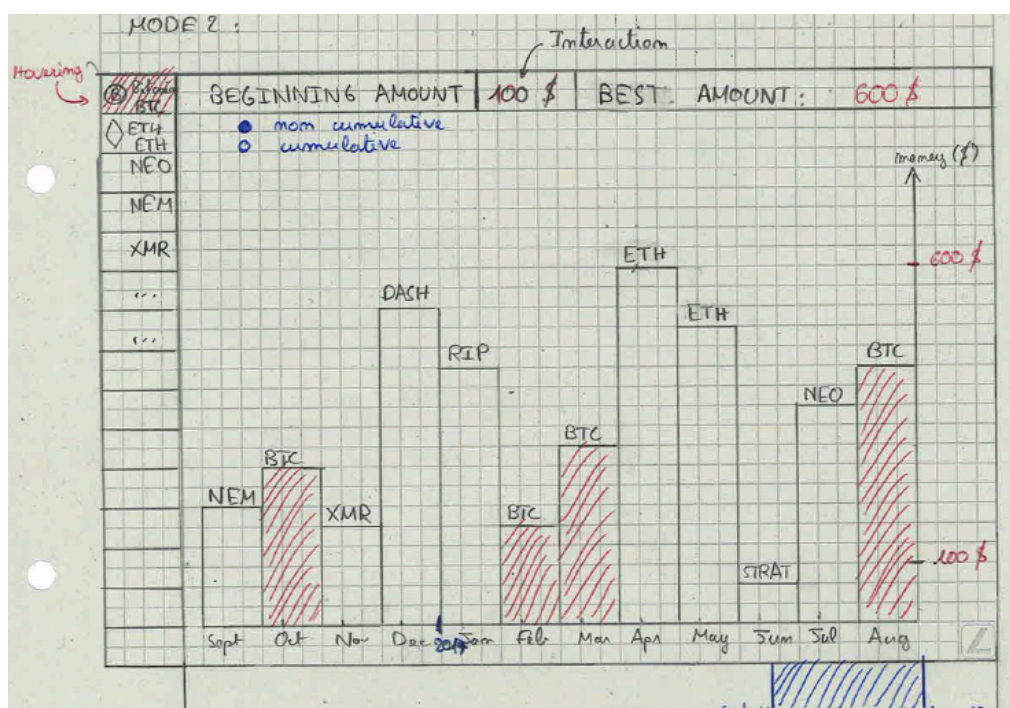 MODE 2 :
Interaction
Hovering
Bitcoin
BTC
BEGINNING AMOUNT 100 $ BEST. AMOUNT: 600 $
ETH
ETH
non cumulative
cumulative
NEO
NEM
XMR
...
...
money ($)
600 $
100 $
NEM
BTC
XMR
DASH
RIP
BTC
BTC
ETH
ETH
STRAT
NEO
BTC
Sept Oct Nov Dec 2017 Jan Feb Mar Apr May Jun Jul Aug